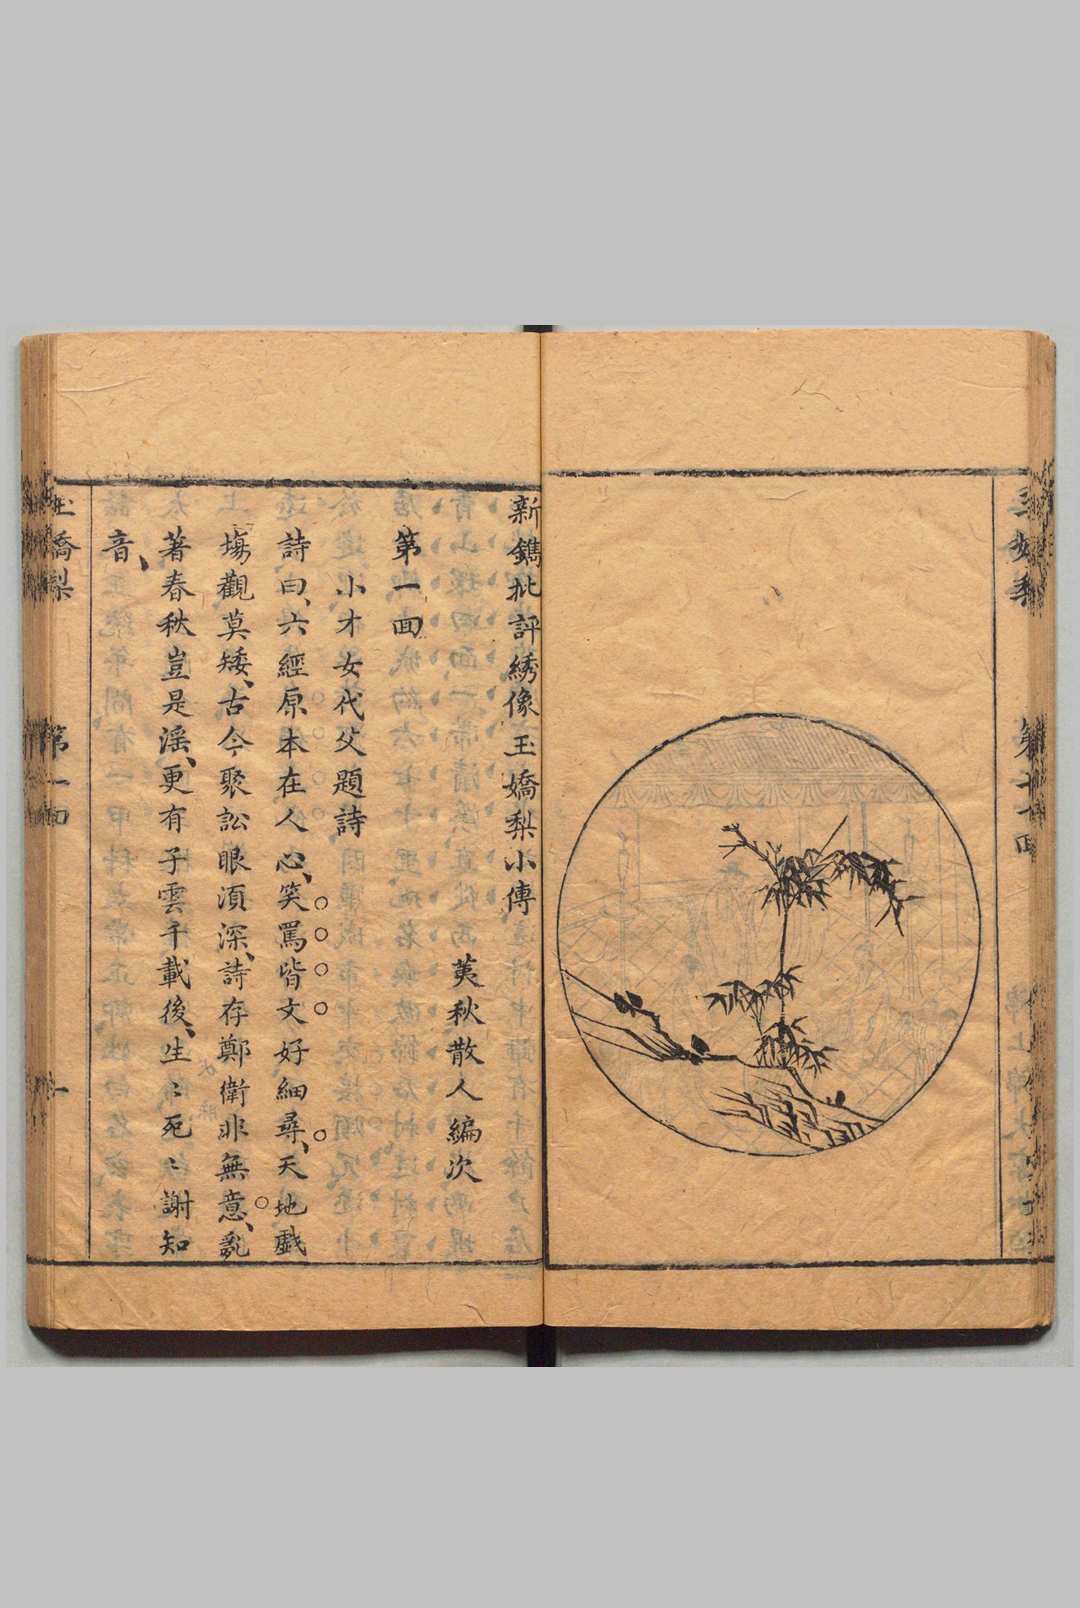 新鐫批評綉像玉嬌梨小傳
荑秋散人編次
第一囬
小才女代父題詩
詩曰、六經原本在人心、笑罵皆文好細尋、天地戯
塲觀莫矮、古今聚訟眼湏深、詩存鄭衛非無意、亂
著春秋豈是淫、更有子雲千載後、生〻死〻謝知
音、
玉嬌梨 第一囬 一